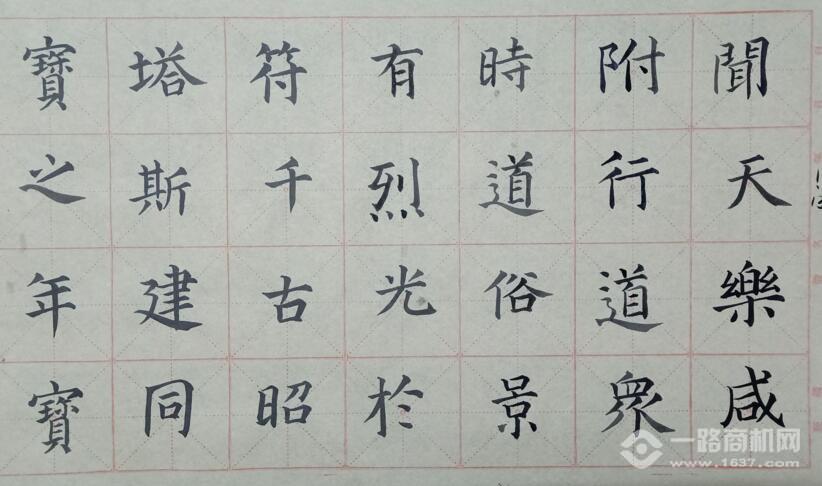 聞天樂咸
附行道眾
時道俗景
有烈光於
符千古昭
塔斯建同
寶之年寶
一路商机网
www.1637.com